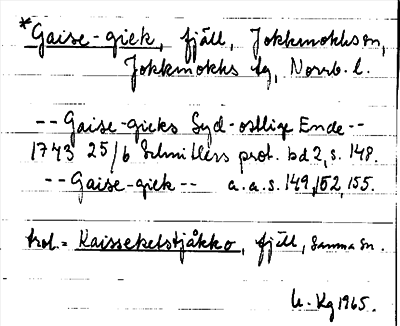 *Gaise-giek, fjäll, Jokkmokks sn,
Jokkmokks lg, Norrb. l.
-- Gaise-gieks Syd-ostlige Ende --
1743 25/6 Schnitlers prot. bd 2, s. 148.
-- Gaise-giek -- a.a.s. 149, 152, 155.
trol. = Kaisseketstjåkko, fjäll, samma sn.
Kg 1965.